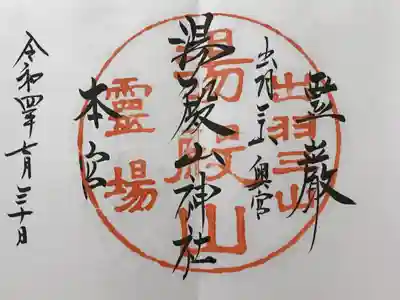 霊巌
出羽三山奥宮
湯殿山神社
本宮
令和四年七月三十日
出羽三山
湯殿山
靈場